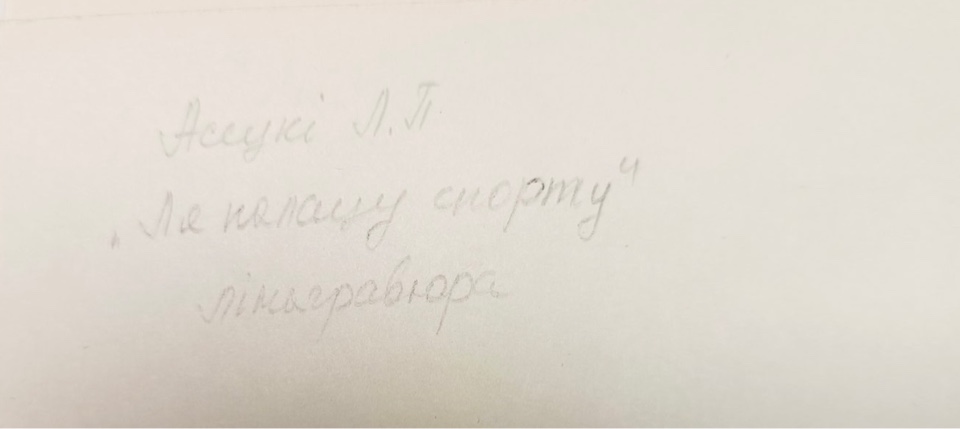 Асецкі Л.П
„Ля палацу спорту"
лінагравюра